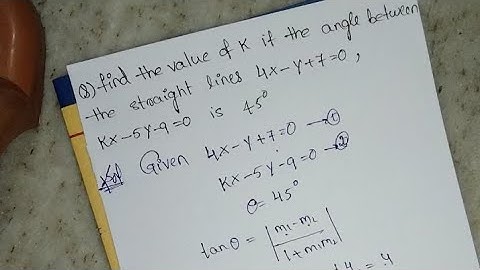 Q) find the value of K if the angle between
the straight lines 4x-y+7=0,
Kx-5y-9=0 is 45°
Sol Given 4x-y+7=0 →①
Kx-5y-9=0 →②
θ=45°
tanθ = |m₁-m₂ / 1+m₁m₂|